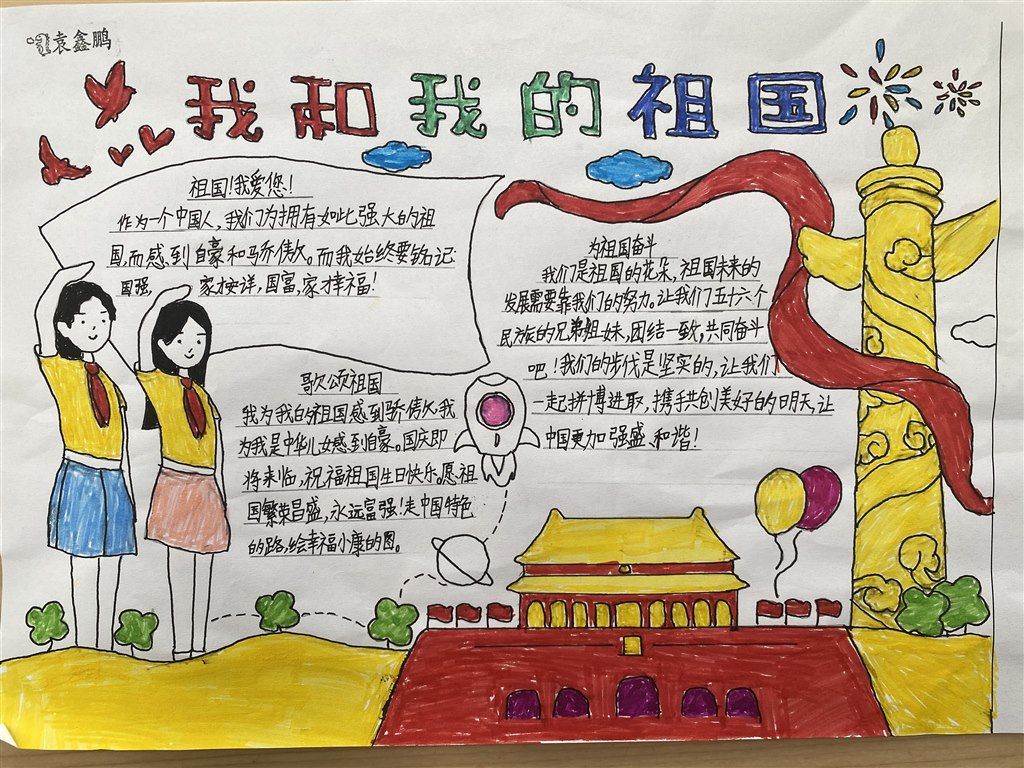 袁鑫鹏
我和我的祖国
祖国!我爱您!
作为一个中国人,我们为拥有如此强大的祖
国,而感到自豪和骄傲。而我始终要铭记
国强,家才祥,国富,家才幸福!
为祖国奋斗
我们是祖国的花朵,祖国未来的
发展需要靠我们的努力。让我们五十六个
民族的兄弟姐妹,团结一致,共同奋斗
吧!我们的步伐是坚实的,让我们
一起拼博进取,携手共创美好的明天,让
中国更加强盛、和谐!
歌颂祖国
我为我的祖国感到骄傲,我
为我是中华儿女感到自豪。国庆即
将来临,祝福祖国生日快乐。愿祖
国繁荣昌盛,永远富强!走中国特色
的路,绘幸福小康的图。